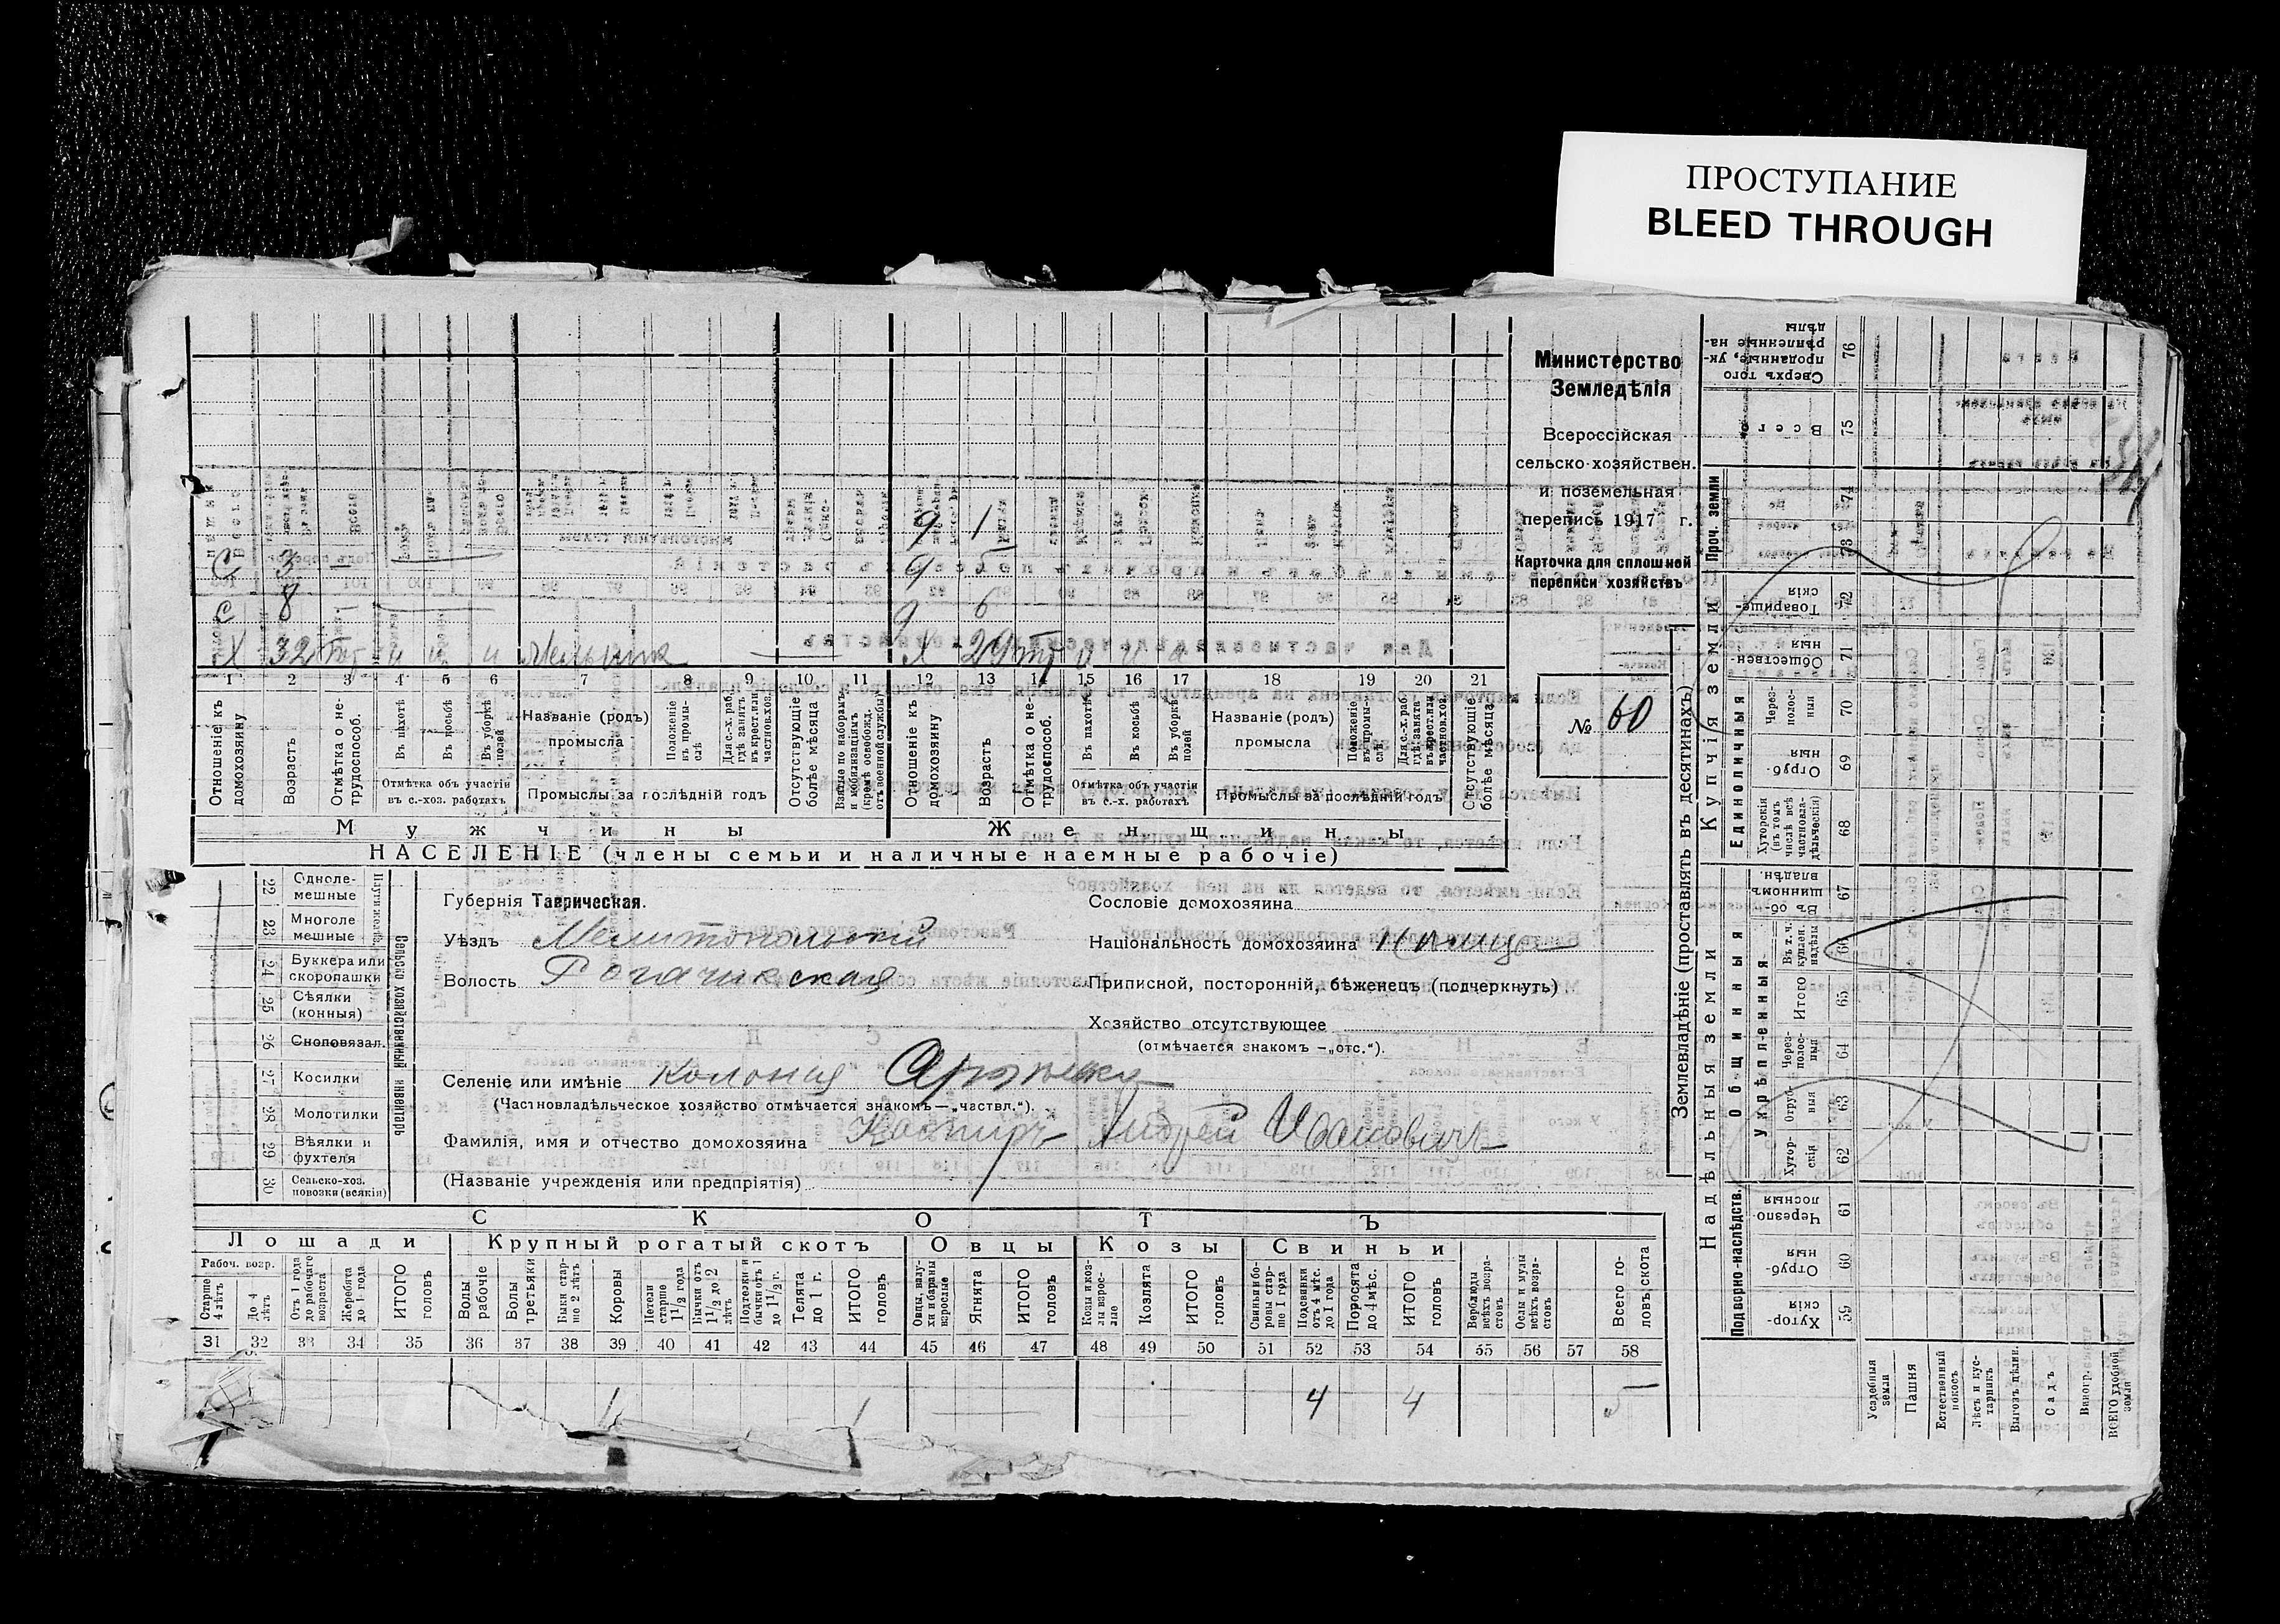 ПРОСТУПАНИЕ
BLEED THROUGH
Министерство
Земледѣлія
Всероссійская
сельско-хозяйствен.
и поземельная
перепись 1917 г.
Карточка для сплошной
переписи хозяйствъ
№ 60
9 1
С 3 — 9
С 8 9 6
Х 32 и и и Х 29
1 2 3 4 5 6 7 8 9 10 11 12 13 14 15 16 17 18 19 20 21
Отношеніе къ домохозяину
Возрастъ
Отмѣтка о нетрудоспособ.
Въ пахотѣ
Въ косьбѣ
Въ уборкѣ полей
Отмѣтка объ участіи въ с.-хоз. работахъ
Названіе (родъ) промысла
Положеніе въ промыслѣ
Для с.-х. раб. гдѣ занятъ въ крест. или частнов. хоз.
Промыслы за послѣдній годъ
Отсутствующіе болѣе мѣсяца
Взятые по наборамъ и мобилизаціямъ (кромѣ освобожд. отъ военной службы)
Отношеніе къ домохозяину
Возрастъ
Отмѣтка о нетрудоспособ.
Въ пахотѣ
Въ косьбѣ
Въ уборкѣ полей
Отмѣтка объ участіи въ с.-х. работахъ
Названіе (родъ) промысла
Положеніе въ промыслѣ
Для с.-х. раб. гдѣ занята въ крест. или частнов. хоз.
Промыслы за послѣдній годъ
Отсутствующіе болѣе мѣсяца
Мужчины Женщины
НАСЕЛЕНІЕ (члены семьи и наличные наемные рабочіе)
22 Однолемешные
23 Многолемешные
24 Буккера или скоропашки
25 Сѣялки (конныя)
26 Сноповязал.
27 Косилки
28 Молотилки
29 Вѣялки и фухтеля
30 Сельско-хоз. повозки (всякія)
Сельско хозяйственный инвентарь
Губернія Таврическая.
Уѣздъ Мелитопольскій
Волость Рогачикская
Сословіе домохозяина
Національность домохозяина
Приписной, посторонній, бѣженецъ (подчеркнуть)
Хозяйство отсутствующее
(отмѣчается знакомъ —„отс.“).
Селеніе или имѣніе колонія
(Частновладѣльческое хозяйство отмѣчается знакомъ—„частвл.“).
Фамилія, имя и отчество домохозяина Андрей Ивановичъ
(Названіе учрежденія или предпріятія)
СКОТЪ
Лошади Крупный рогатый скотъ Овцы Козы Свиньи
Рабоч. возр.
Старше 4 лѣтъ
До 4 лѣтъ
Отъ 1 года до рабочаго возраста
Жеребята до 1 года
ИТОГО головъ
Волы рабочіе
Волы третьяки
Быки старше 2 лѣтъ
Коровы
Нетели старше 1 1/2 года
Бычки отъ 1 1/2 до 2 лѣтъ
Подтелки и бычки отъ 1 до 1 1/2 г.
Телята до 1 г.
ИТОГО головъ
Овцы, валухи и бараны взрослые
Ягнята
ИТОГО головъ
Козы и козлы взрослые
Козлята
ИТОГО головъ
Свиньи и боровы старше 1 года
Подсвинки отъ 4 мѣс. до 1 года
Поросята до 4 мѣс.
ИТОГО головъ
Верблюды всѣхъ возрастовъ
Ослы и мулы всѣхъ возрастовъ
Всего головъ скота
31 32 33 34 35 36 37 38 39 40 41 42 43 44 45 46 47 48 49 50 51 52 53 54 55 56 57 58
1 1 4 4 5
Землевладѣніе (проставлять въ десятинахъ)
Купчія земли
Надѣльныя земли
Проч. земли
Единоличныя
Общинныя
Укрѣпленныя
Подворно-наслѣдств.
Сверхъ того проданные, укрѣпленные надѣлы 76
Всего 75
74
73
Товарищескія 72
Общественныя 71
Черезполосныя 70
Отрубныя 69
Хуторскія (въ томъ числѣ всѣ частновладѣльческія) 68
Въ общинномъ владѣн. 67
Въ т. ч. куплен. надѣлы 66
Итого 65
Черезполосныя 64
Отрубныя 63
Хуторскія 62
Черезполосныя 61
Отрубныя 60
Хуторскія 59
Усадебныя земли
Пашня
Естественный покосъ
Лѣсъ и кустарникъ
Выгонъ цѣлин.
Садъ
Виногр.
ВСЕГО удобной земли